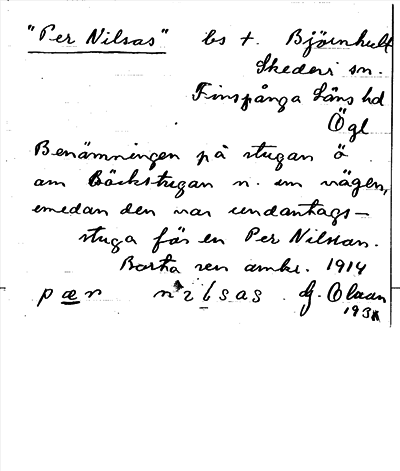 "Per Nilsas" bs t. Björnhult
Skedevi sn.
Finspånga Läns hd
Ögl
Benämningen på stugan ö
om Bäckstugan n. om vägen,
emedan den var undantags-
stuga för en Per Nilsson.
Borta sen omkr. 1914
pær